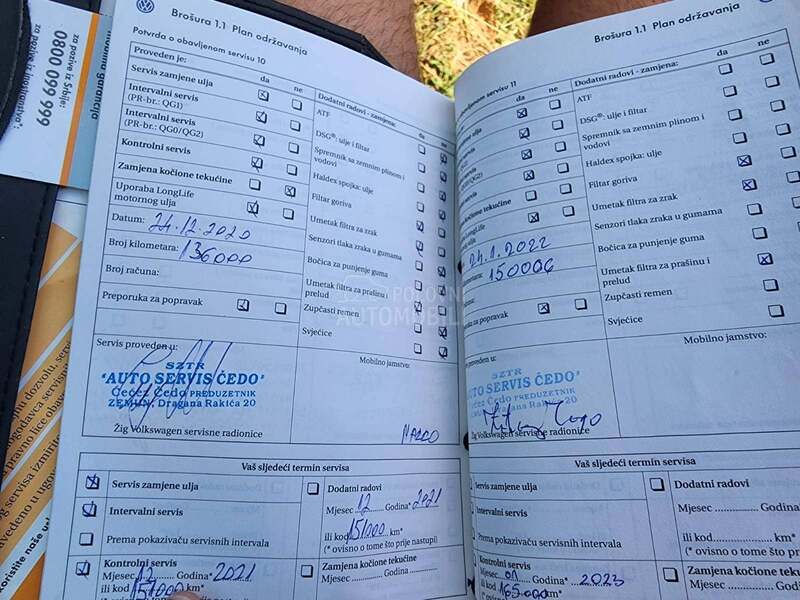 garancija
za pozive iz Srbije:
0800 099 999
za pozive iz inostranstva:
Brošura 1.1 Plan održavanja
Potvrda o obavljenom servisu 10
Proveden je:
da
ne
Servis zamjene ulja
Intervalni servis
(PR-br.: QG1)
Intervalni servis
(PR-br.: QG0/QG2)
Kontrolni servis
Zamjena kočione tekućine
Uporaba LongLife
motornog ulja
Datum: 24.12.2020
Broj kilometara: 136000
Broj računa:
Preporuka za popravak
Dodatni radovi - zamjena:
da
ne
ATF
DSG®: ulje i filtar
Spremnik sa zemnim plinom i
vodovi
Haldex spojka: ulje
Filtar goriva
Umetak filtra za zrak
Senzori tlaka zraka u gumama
Bočica za punjenje guma
Umetak filtra za prašinu i
prelud
Zupčasti remen
Svjećice
Servis proveden u:
SZTR
'AUTO SERVIS ČEDO'
Čečez Čedo PREDUZETNIK
ZEMUN, Dragana Rakića 20
Žig Volkswagen servisne radionice
Mobilno jamstvo:
Vaš sljedeći termin servisa
Servis zamjene ulja
Intervalni servis
Prema pokazivaču servisnih intervala
Kontrolni servis
Mjesec 12 Godina* 2021
ili kod 151000 km*
Dodatni radovi
Mjesec 12 Godina* 2021
ili kod 151000 km*
(* ovisno o tome što prije nastupi)
Zamjena kočione tekućine
Mjesec Godina*
Brošura 1.1 Plan održavanja
obavljenom servisu 11
da
ne
ulja
LongLife
24.1.2022
150006
popravak
Dodatni radovi - zamjena:
da
ne
ATF
DSG®: ulje i filtar
Spremnik sa zemnim plinom i
vodovi
Haldex spojka: ulje
Filtar goriva
Umetak filtra za zrak
Senzori tlaka zraka u gumama
Bočica za punjenje guma
Umetak filtra za prašinu i
prelud
Zupčasti remen
Svjećice
proveden u:
SZTR
'AUTO SERVIS ČEDO'
Čečez Čedo PREDUZETNIK
ZEMUN, Dragana Rakića 20
Žig Volkswagen servisne radionice
Mobilno jamstvo:
Vaš sljedeći termin servisa
Servis zamjene ulja
Intervalni servis
Prema pokazivaču servisnih intervala
Kontrolni servis
Mjesec 01 Godina* 2023
ili kod 165000 km*
Dodatni radovi
Mjesec Godina*
ili kod km*
(* ovisno o tome što prije nastupi)
Zamjena kočione tekućine
Mjesec Godina*